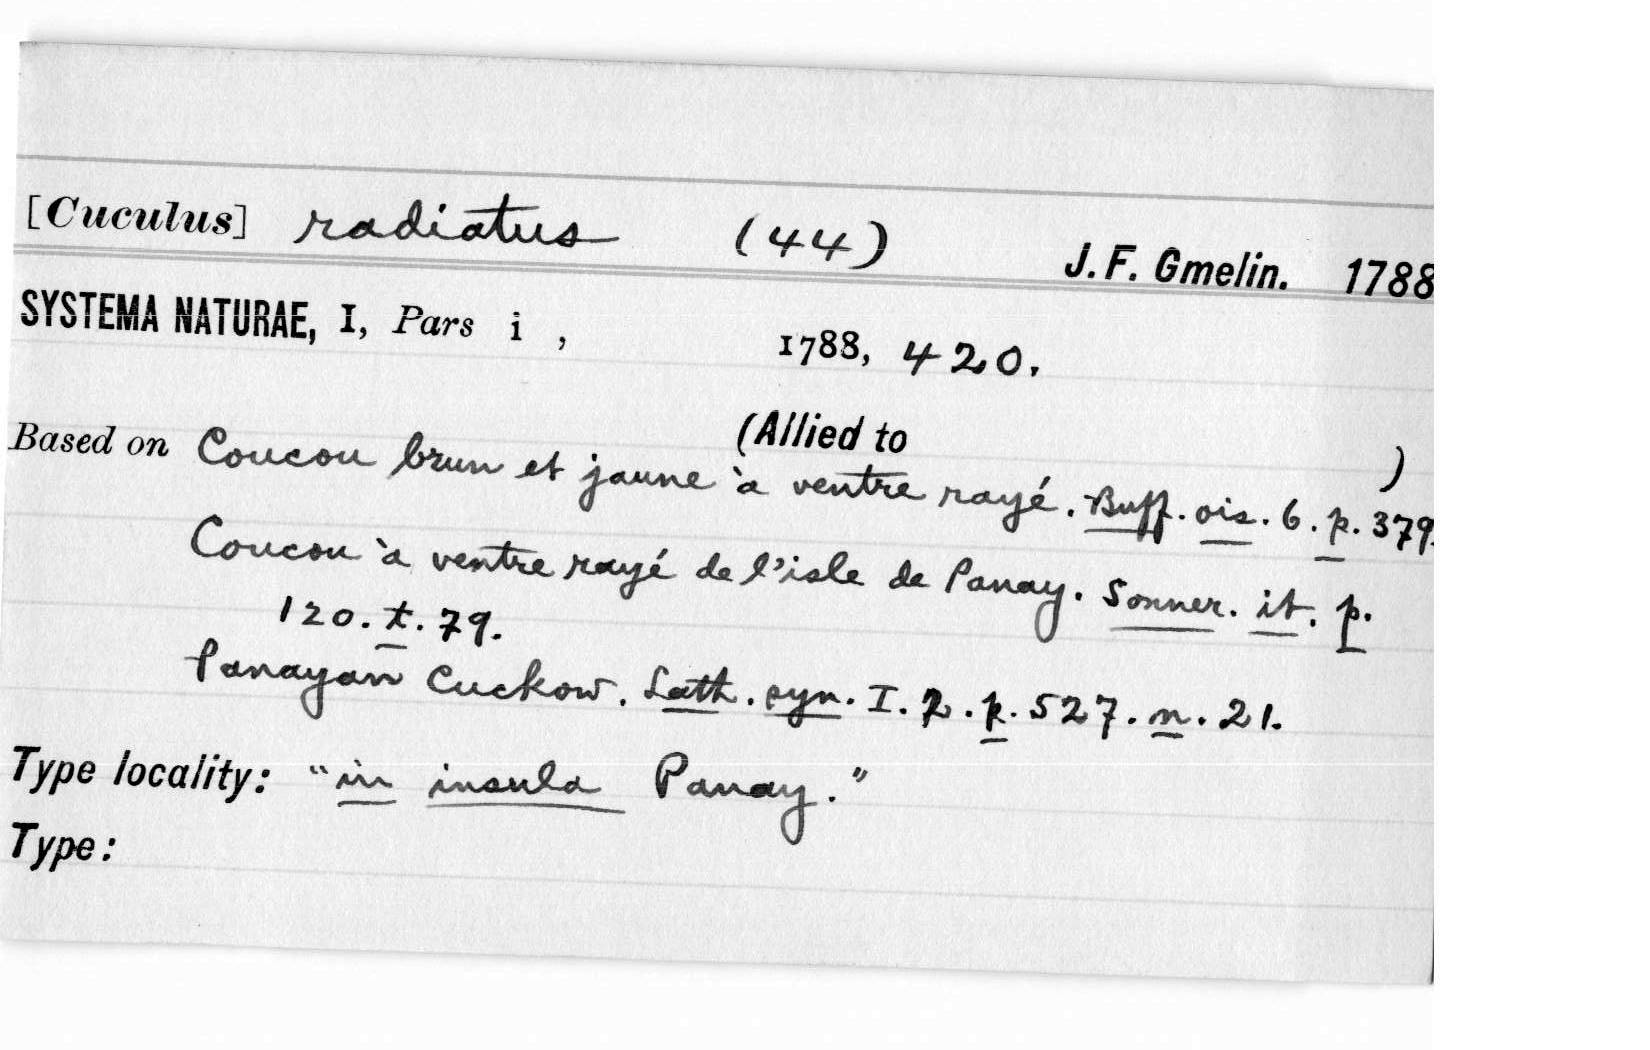 [Cuculus] radiatus (44) J. F. Gmelin. 1788
SYSTEMA NATURAE, I, Pars i , 1788, 420.
(Allied to )
Based on Coucou brun et jaune à ventre rayé. Buff. ois. 6. p. 379.
Coucou à ventre rayé de l'isle de Panay. Sonner. it. p.
120. t. 79.
Panayan Cuckow. Lath. syn. I. 2. p. 527. n. 21.
Type locality: "in insula Panay."
Type: